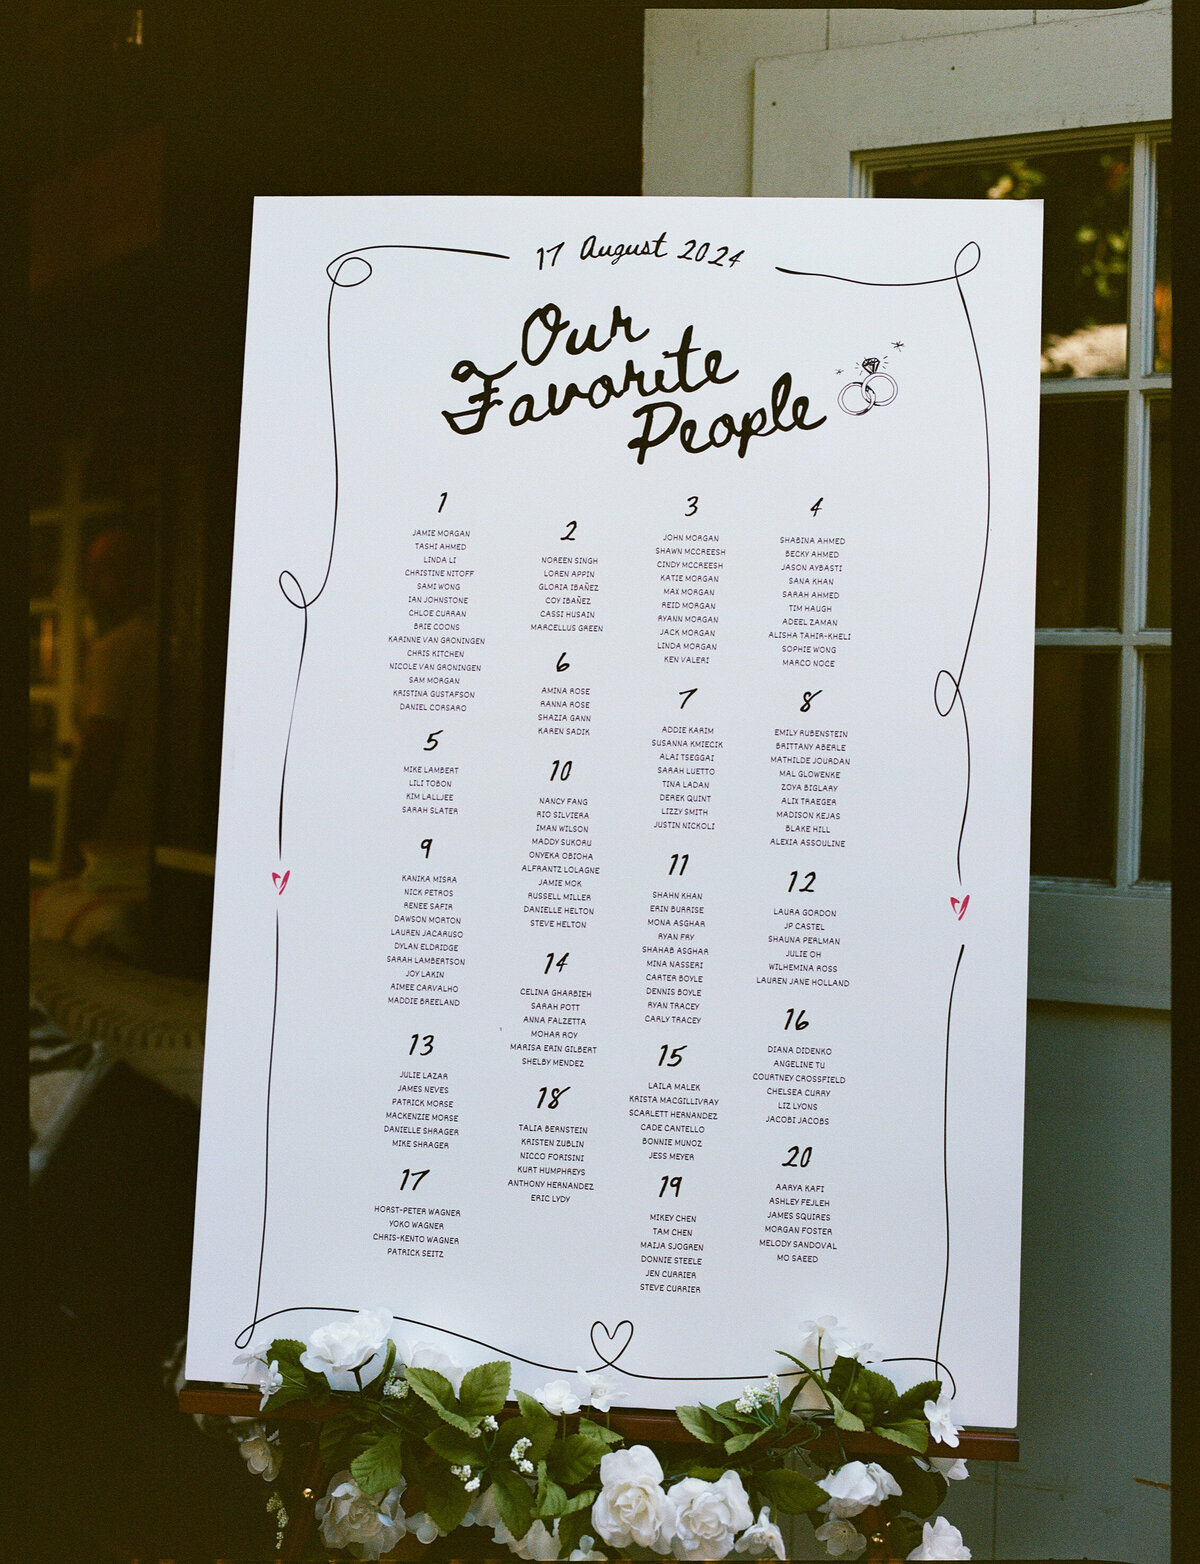 17 August 2024
Our
Favorite
People
1
JAMIE MORGAN
TASHI AHMED
LINDA LI
CHRISTINE NITOFF
SAMI WONG
IAN JOHNSTONE
CHLOE CURRAN
BRIE COONS
KARINNE VAN GRONINGEN
CHRIS KITCHEN
NICOLE VAN GRONINGEN
SAM MORGAN
KRISTINA GUSTAFSON
DANIEL CORSARO
2
NOREEN SINGH
LOREN APPIN
GLORIA IBAÑEZ
COY IBAÑEZ
CASSI HUSAIN
MARCELLUS GREEN
3
JOHN MORGAN
SHAWN MCCREESH
CINDY MCCREESH
KATIE MORGAN
MAX MORGAN
REID MORGAN
RYANN MORGAN
JACK MORGAN
LINDA MORGAN
KEN VALERI
4
SHABINA AHMED
BECKY AHMED
JASON AYBASTI
SANA KHAN
SARAH AHMED
TIM HAUGH
ADEEL ZAMAN
ALISHA TAHIR-KHELI
SOPHIE WONG
MARCO NOCE
5
MIKE LAMBERT
LILI TOBON
KIM LALLJEE
SARAH SLATER
6
AMINA ROSE
RANNA ROSE
SHAZIA GANN
KAREN SADIK
7
ADDIE KARIM
SUSANNA KMIECIK
ALAI TSEGGAI
SARAH LUETTO
TINA LADAN
DEREK QUINT
LIZZY SMITH
JUSTIN NICKOLI
8
EMILY RUBENSTEIN
BRITTANY ABERLE
MATHILDE JOURDAN
MAL GLOWENKE
ZOYA BIGLARY
ALIX TRAEGER
MADISON KEJAS
BLAKE HILL
ALEXIA ASSOULINE
9
KANIKA MISRA
NICK PETROS
RENEE SAFIR
DAWSON MORTON
LAUREN JACARUSO
DYLAN ELDRIDGE
SARAH LAMBERTSON
JOY LAKIN
AIMEE CARVALHO
MADDIE BREELAND
10
NANCY FANG
RIO SILVIERA
IMAN WILSON
MADDY SUKORU
ONYEKA OBIOHA
ALFRANTZ LOLAGNE
JAMIE MOK
RUSSELL MILLER
DANIELLE HELTON
STEVE HELTON
11
SHAHN KHAN
ERIN BURRISE
MONA ASGHAR
RYAN FRY
SHAHAB ASGHAR
MINA NASSERI
CARTER BOYLE
DENNIS BOYLE
RYAN TRACEY
CARLY TRACEY
12
LAURA GORDON
JP CASTEL
SHAUNA PERLMAN
JULIE OH
WILHEMINA ROSS
LAUREN JANE HOLLAND
13
JULIE LAZAR
JAMES NEVES
PATRICK MORSE
MACKENZIE MORSE
DANIELLE SHRAGER
MIKE SHRAGER
14
CELINA GHARBIEH
SARAH POTT
ANNA FALZETTA
MOHAR ROY
MARISA ERIN GILBERT
SHELBY MENDEZ
15
LAILA MALEK
KRISTA MACGILLIVRAY
SCARLETT HERNANDEZ
CADE CANTELLO
BONNIE MUNOZ
JESS MEYER
16
DIANA DIDENKO
ANGELINE TU
COURTNEY CROSSFIELD
CHELSEA CURRY
LIZ LYONS
JACOBI JACOBS
17
HORST-PETER WAGNER
YOKO WAGNER
CHRIS-KENTO WAGNER
PATRICK SEITZ
18
TALIA BERNSTEIN
KRISTEN ZUBLIN
NICCO FORISINI
KURT HUMPHREYS
ANTHONY HERNANDEZ
ERIC LYDY
19
MIKEY CHEN
TAM CHEN
MAIJA SJOGREN
DONNIE STEELE
JEN CURRIER
STEVE CURRIER
20
AARYA KAFI
ASHLEY FEJLEH
JAMES SQUIRES
MORGAN FOSTER
MELODY SANDOVAL
MO SAEED